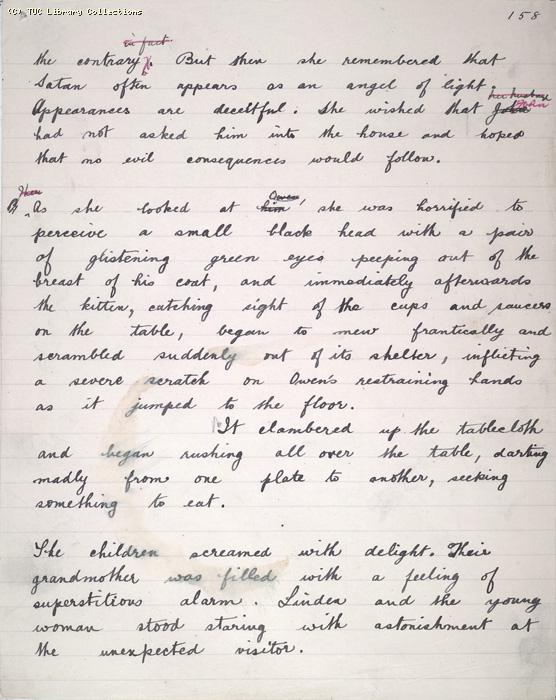 (C) TUC Library Collections
158
in fact
the contrary. But then she remembered that
Satan often appears as an angel of light.
Appearances are deceitful. She wished that John her husband John
had not asked him into the house and hoped
that no evil consequences would follow.
Then
As she looked at him Owen, she was horrified to
perceive a small black head with a pair
of glistening green eyes peeping out of the
breast of his coat, and immediately afterwards
the kitten, catching sight of the cups and saucers
on the table, began to mew frantically and
scrambled suddenly out of its shelter, inflicting
a severe scratch on Owen's restraining hands
as it jumped to the floor.
It clambered up the tablecloth
and began rushing all over the table, darting
madly from one plate to another, seeking
something to eat.
The children screamed with delight. Their
grandmother was filled with a feeling of
superstitious alarm. Linden and the young
woman stood staring with astonishment at
the unexpected visitor.